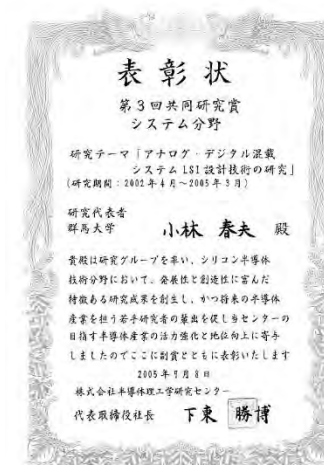 表彰状
第3回共同研究賞
システム分野
研究テーマ「アナログ・デジタル混載
システムLSI設計技術の研究」
(研究期間:2002年4月~2005年3月)
研究代表者
群馬大学 小林 春夫 殿
貴殿は研究グループを率い、シリコン半導体
技術分野において、発展性と創造性に富んだ
特徴ある研究成果を創生し、かつ将来の半導体
産業を担う若手研究者の輩出を促し当センターの
目指す半導体産業の活力強化と地位向上に寄与
しましたのでここに副賞とともに表彰いたします
2005年9月8日
株式会社半導体理工学研究センター
代表取締役社長 下東 勝博